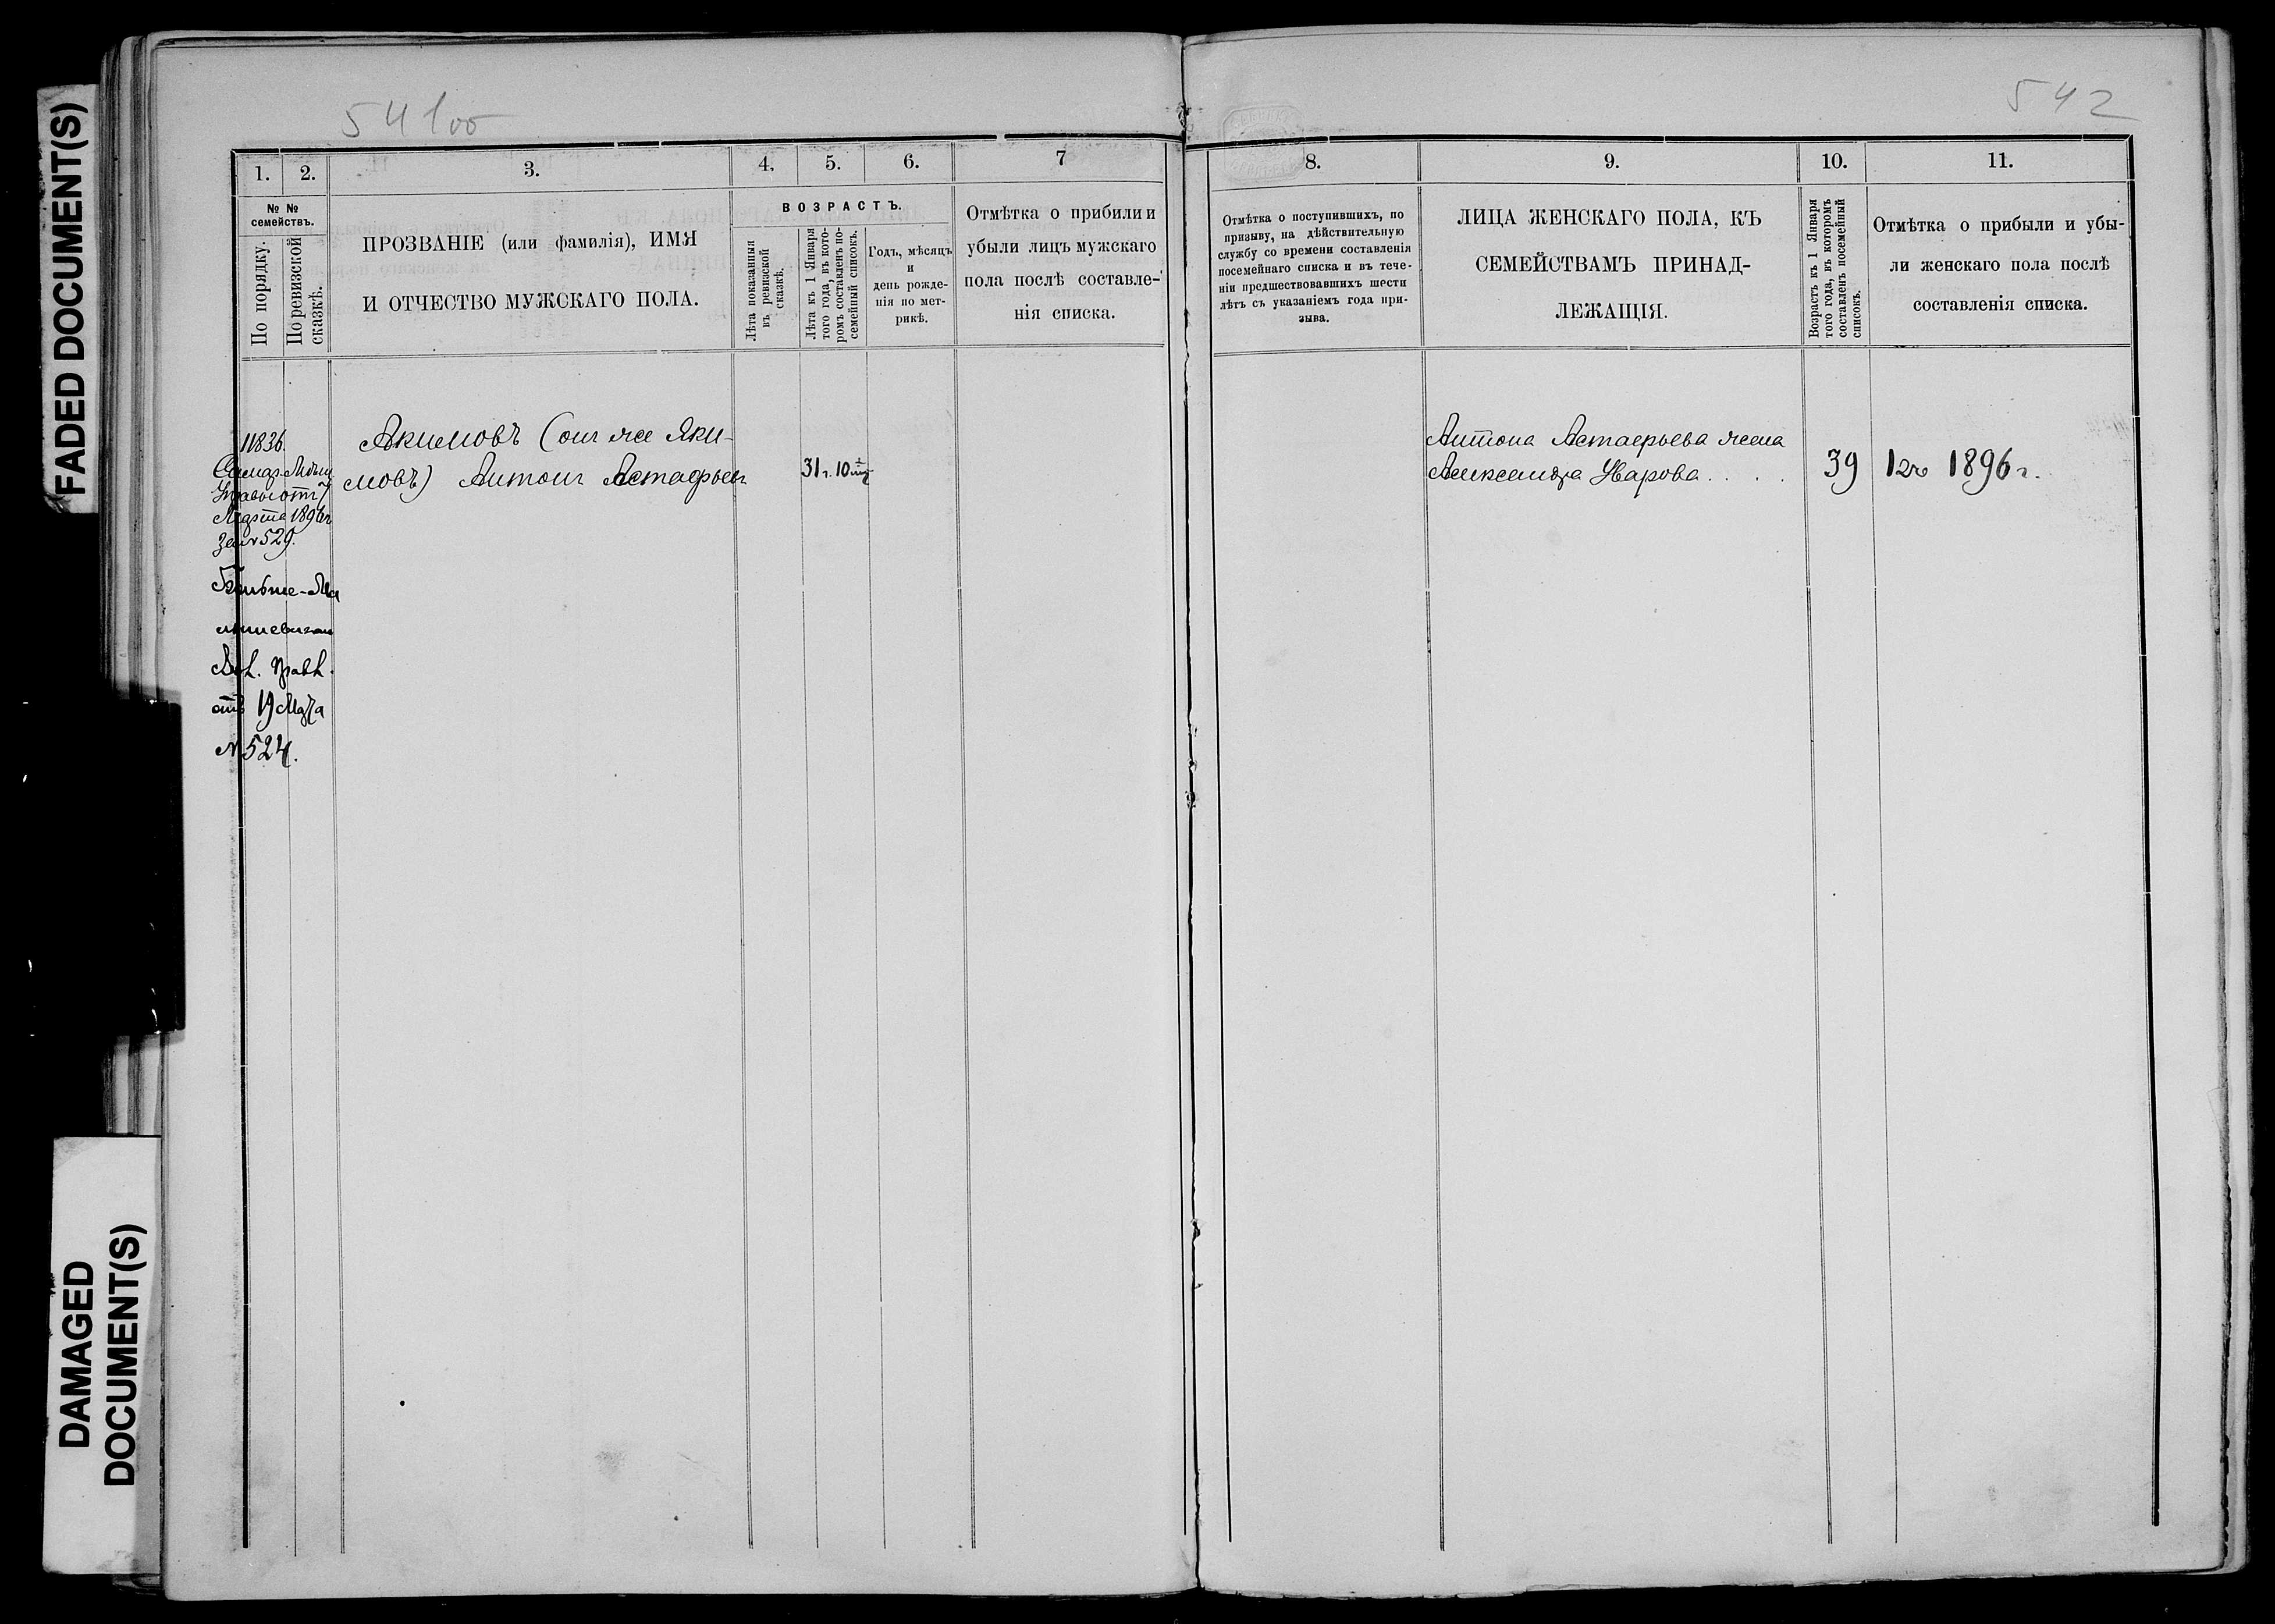 FADED DOCUMENT(S)
DAMAGED
DOCUMENT(S)
541об
1. 2. 3. 4. 5. 6. 7
№ №
семействъ.
По порядку.
По ревизской
сказкѣ.
ПРОЗВАНІЕ (или фамилія), ИМЯ
И ОТЧЕСТВО МУЖСКАГО ПОЛА.
ВОЗРАСТЪ.
Лѣта показанныя
въ ревизской
сказкѣ.
Лѣта къ 1 Января
того года, въ кото-
ромъ составленъ по-
семейный списокъ.
Годъ, мѣсяцъ
и
день рожде-
нія по мет-
рикѣ.
Отмѣтка о прибили и
убыли лицъ мужскаго
пола послѣ составле-
нія списка.
11836.
Самар. Мѣщ
Управы отъ 7
Марта 1896г
за № 529.
отъ 19 Марта
№ 524.
Акимовъ (онъ же Яки-
мовъ) Антонъ Астафьев
31 г. 10
542
8. 9. 10. 11.
Отмѣтка о поступившихъ, по
призыву, на дѣйствительную
службу со времени составленія
посемейнаго списка и въ тече-
ніи предшествовавшихъ шести
лѣтъ съ указаніемъ года при-
зыва.
ЛИЦА ЖЕНСКАГО ПОЛА, КЪ
СЕМЕЙСТВАМЪ ПРИНАД-
ЛЕЖАЩІЯ.
Возрастъ къ 1 Января
того года, въ которомъ
составленъ посемейный
списокъ.
Отмѣтка о прибыли и убы-
ли женскаго пола послѣ
составленія списка.
Антона Астафьева жена
Александра Уварова . . . .
39
1896 г.